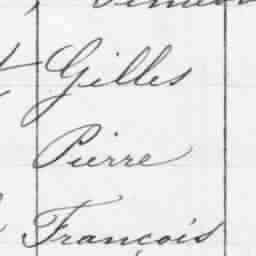 Gilles
Pierre
François